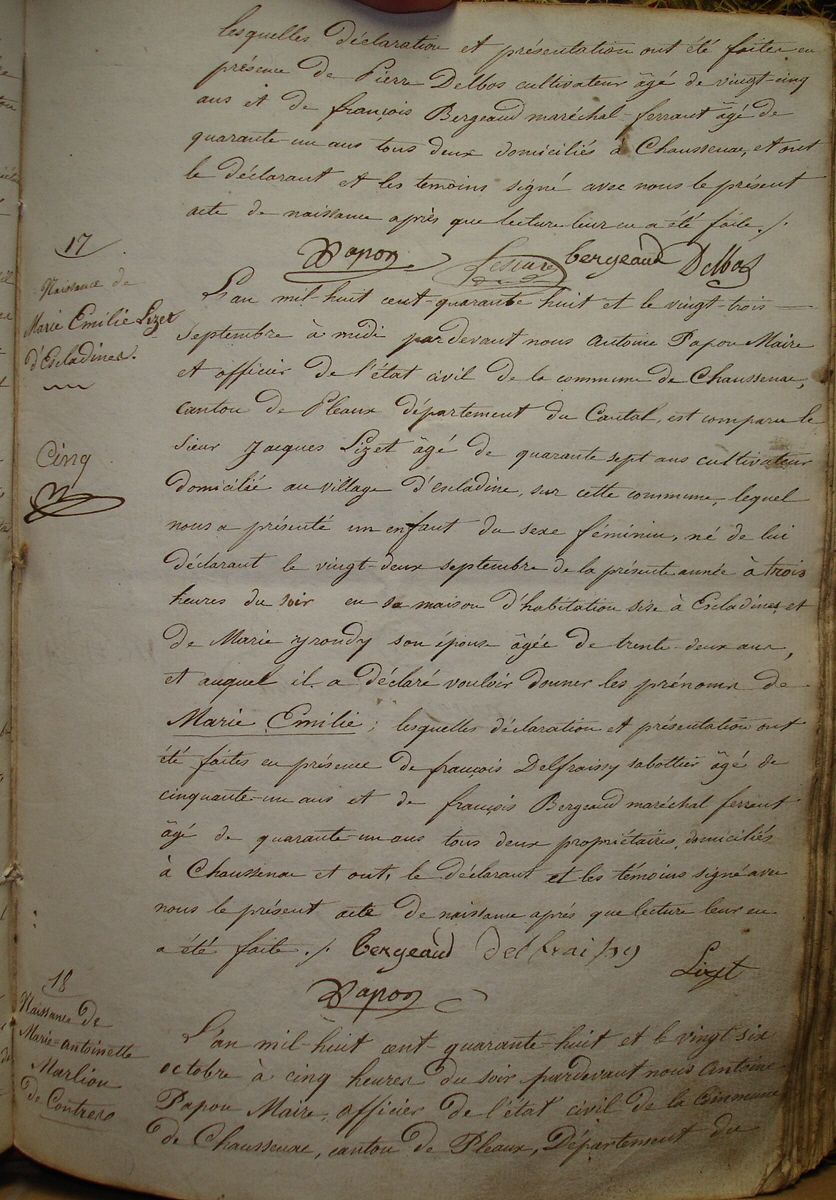 lesquelles déclaration et présentation ont été faites en
présence de Pierre Delbos cultivateur âgé de vingt-cinq
ans et de françois Bergeaud maréchal-ferrant âgé de
quarante-un ans tous deux domiciliés à Chaussenac, et ont
le déclarant et les temoins signé avec nous le présent
acte de naissance après que lecture leur en a été faite ./.
Papon bergeaud Delbos
17
Naissance de
Marie Emilie Lizet
d'Escladines.
Cinq
L'an mil-huit cent-quarante huit et le vingt-trois
Septembre à midi pardevant nous Antoine Papon Maire
et officier de l'état civil de la commune de Chaussenac,
canton de Pleaux département du Cantal, est comparu le
sieur Jacques Lizet âgé de quarante sept ans cultivateur
domicilié au village d'escladine, sur cette commune, lequel
nous a présenté un enfant du sexe féminin, né de lui
déclarant le vingt-deux septembre de la présente année à trois
heures du soir en sa maison d'habitation sise à Escladines, et
de Marie son épouse âgée de trente-deux ans,
et auquel il a déclaré vouloir donner les prénoms de
Marie Emilie ; lesquelles déclaration et présentation ont
été faites en présence de françois Delfraissy sabottier âgé de
cinquante-un ans et de françois Bergeaud maréchal ferrent
âgé de quarante-un ans tous deux propriétaires, domiciliés
à Chaussenac et ont, le déclarant et les témoins signé avec
nous le présent acte de naissance après que lecture leur en
a été faite ./. bergeaud delfraissy Lizet
Papon
18
Naissance de
Marie-antoinette
Marliou
de Contres
L'an mil-huit cent quarante-huit et le vingt six
octobre à cinq heures du soir, pardevant nous Antoine
Papon Maire, officier de l'état civil de la Commune
de Chaussenac, canton de Pleaux, Département du